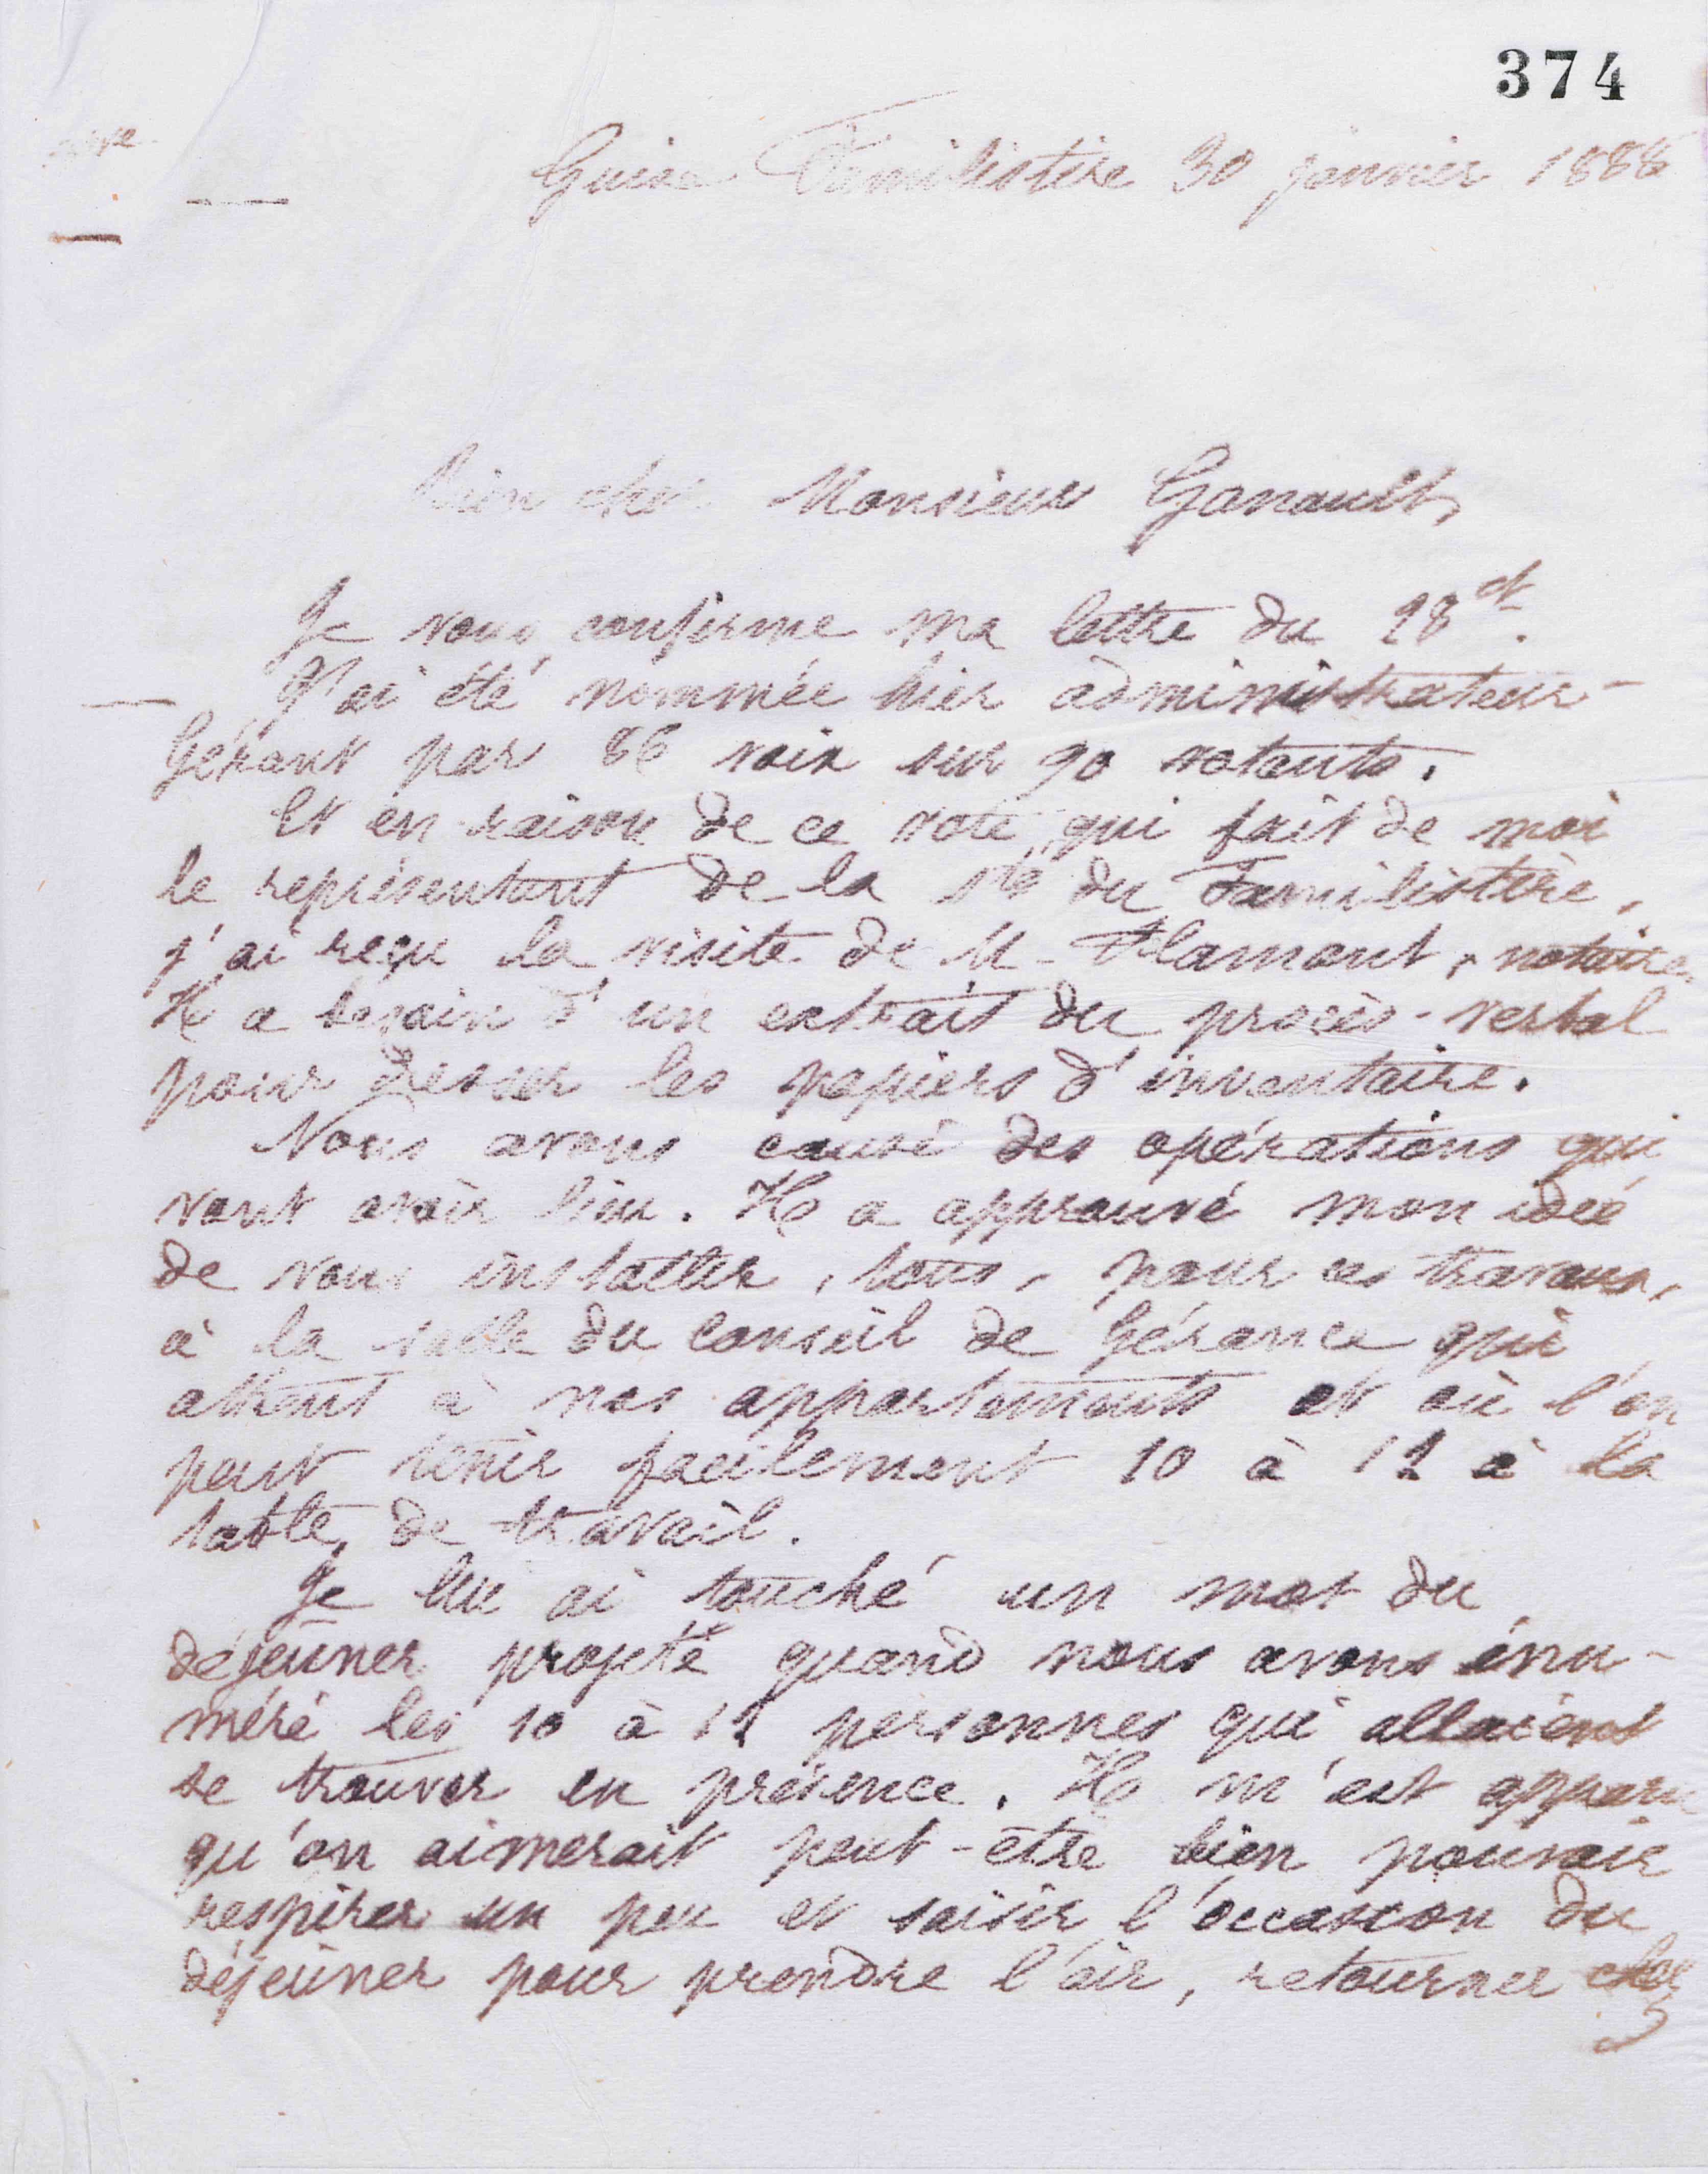 374
Guise Familistère 30 janvier 1888
Bien cher Monsieur Ganault,
Je vous confirme ma lettre du 28 ct.
J'ai été nommée hier administrateur-
Gérant par 86 voix sur 90 votants.
Et en raison de ce vote qui fait de moi
le représentant de la Sté du Familistère,
j'ai reçu la visite de M. Flamant, notaire.
Il a besoin d'un extrait du procès-verbal
pour dresser les papiers d'inventaire.
Nous avons causé des opérations qui
vont avoir lieu. Il a approuvé mon idée
de vous installer, tous, pour ces travaux,
à la salle du Conseil de Gérance qui
attient à nos appartements et où l'on
peut tenir facilement 10 à 12 à la
table de travail.
Je lui ai touché un mot du
déjeuner projeté quand nous avons énu-
méré les 10 à 12 personnes qui allaient
se trouver en présence. Il m'est apparu
qu'on aimerait peut-être bien pouvoir
respirer un peu et saisir l'occasion du
déjeuner pour prendre l'air, retourner chez